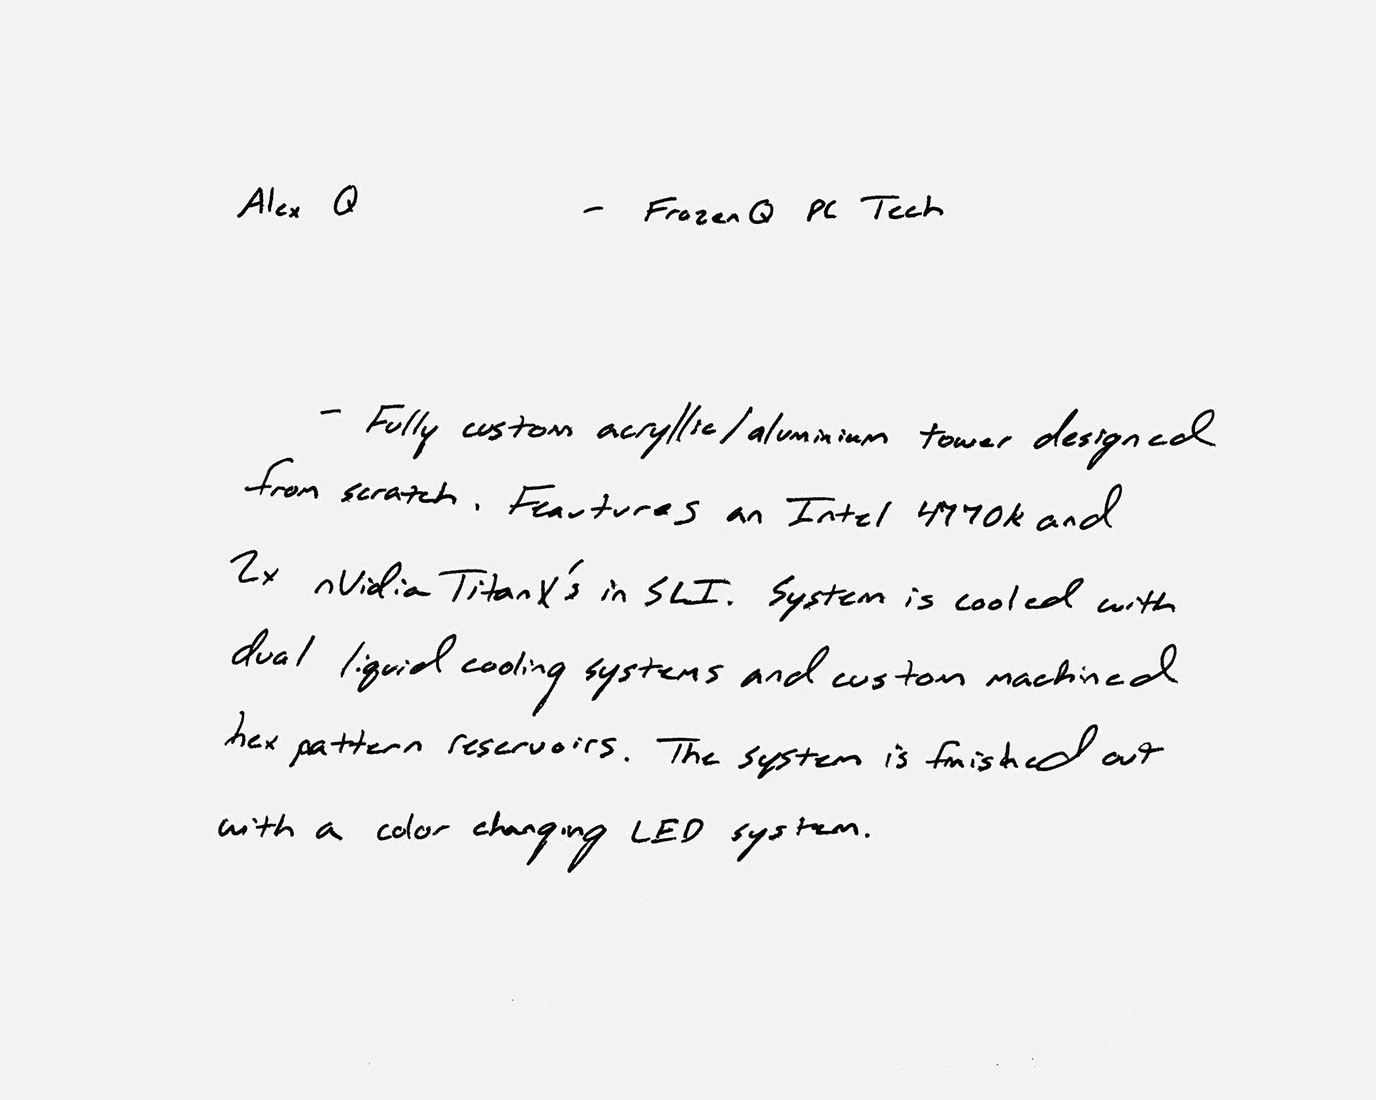 Alex Q - FrozenQ PC Tech
- Fully custom acryllic/aluminium tower designed
from scratch. Feautures an Intel 4770k and
2x nVidia TitanX's in SLI. System is cooled with
dual liquid cooling systems and custom machined
hex pattern reservoirs. The system is finished out
with a color changing LED system.